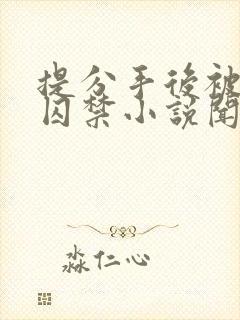 提分手後被
囚禁小説閱
淼仁心